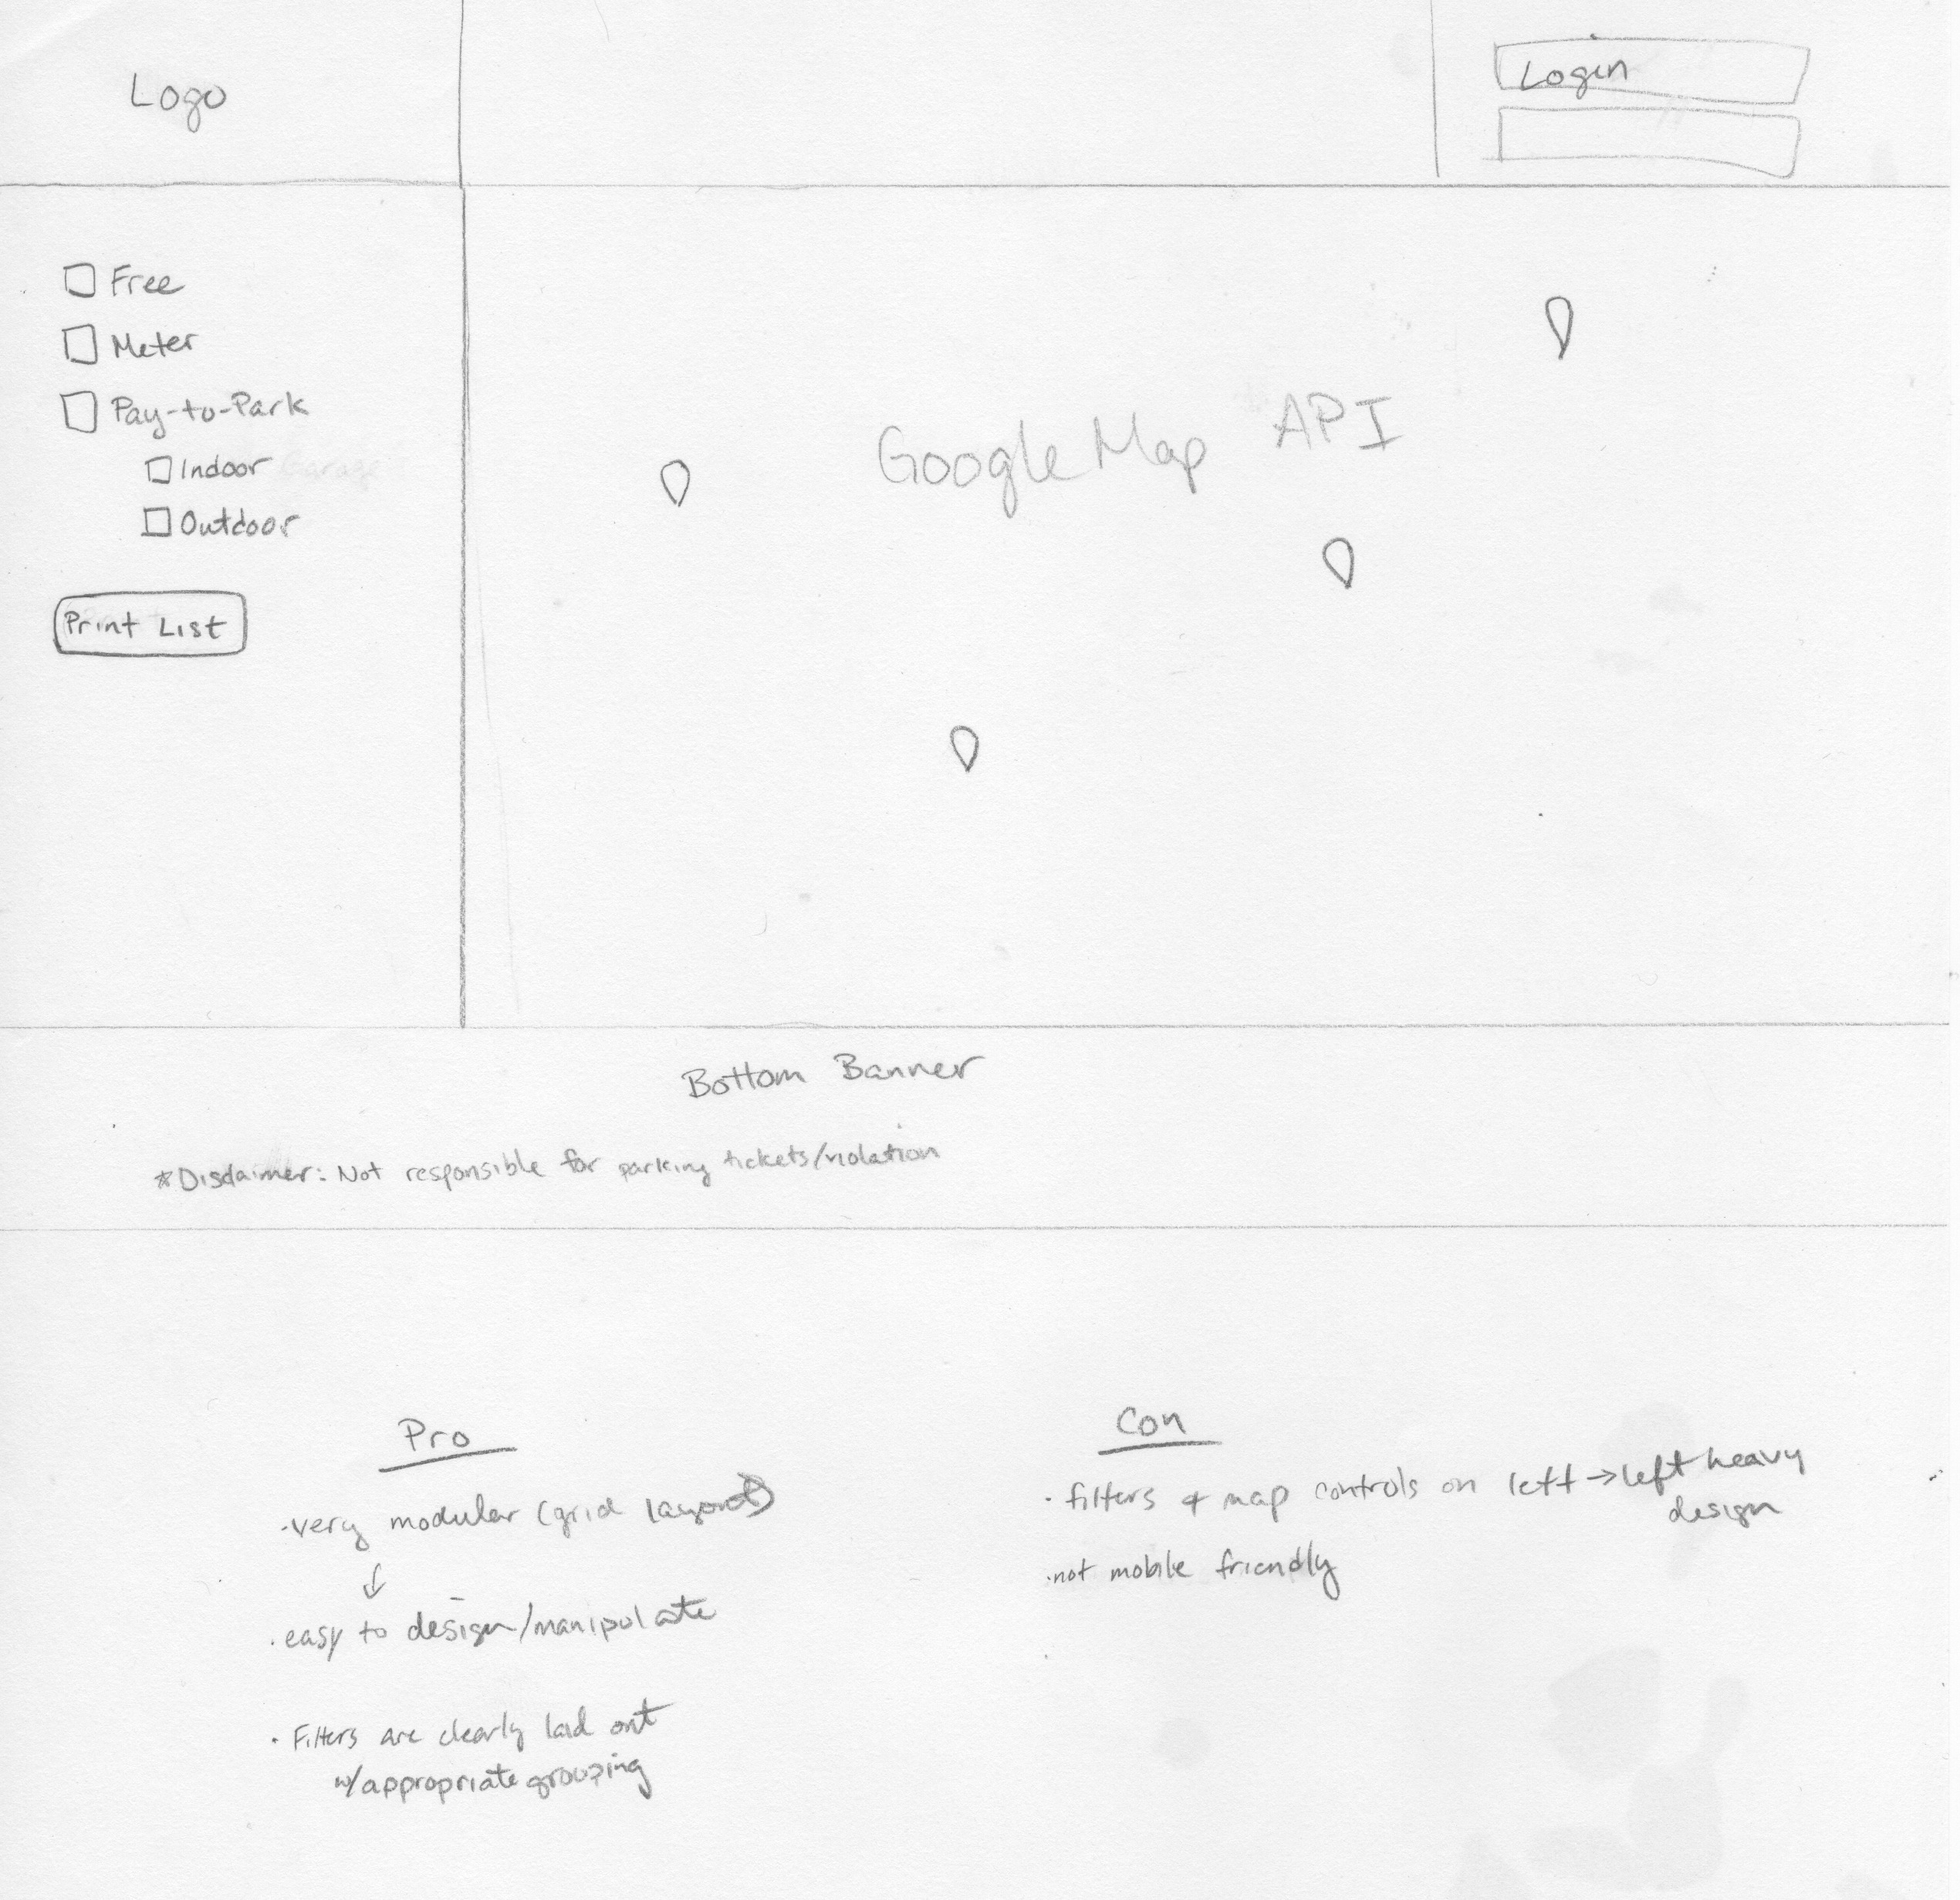 Logo
Login
Free
Meter
Pay-to-Park
Indoor
Outdoor
Print List
Google Map API
Bottom Banner
*Disclaimer: Not responsible for parking tickets/violation
Pro
·very modular (grid layout)
↓
·easy to design/manipulate
·Filters are clearly laid out
w/appropriate grouping
Con
·filters & map controls on left →left heavy
design
·not mobile friendly